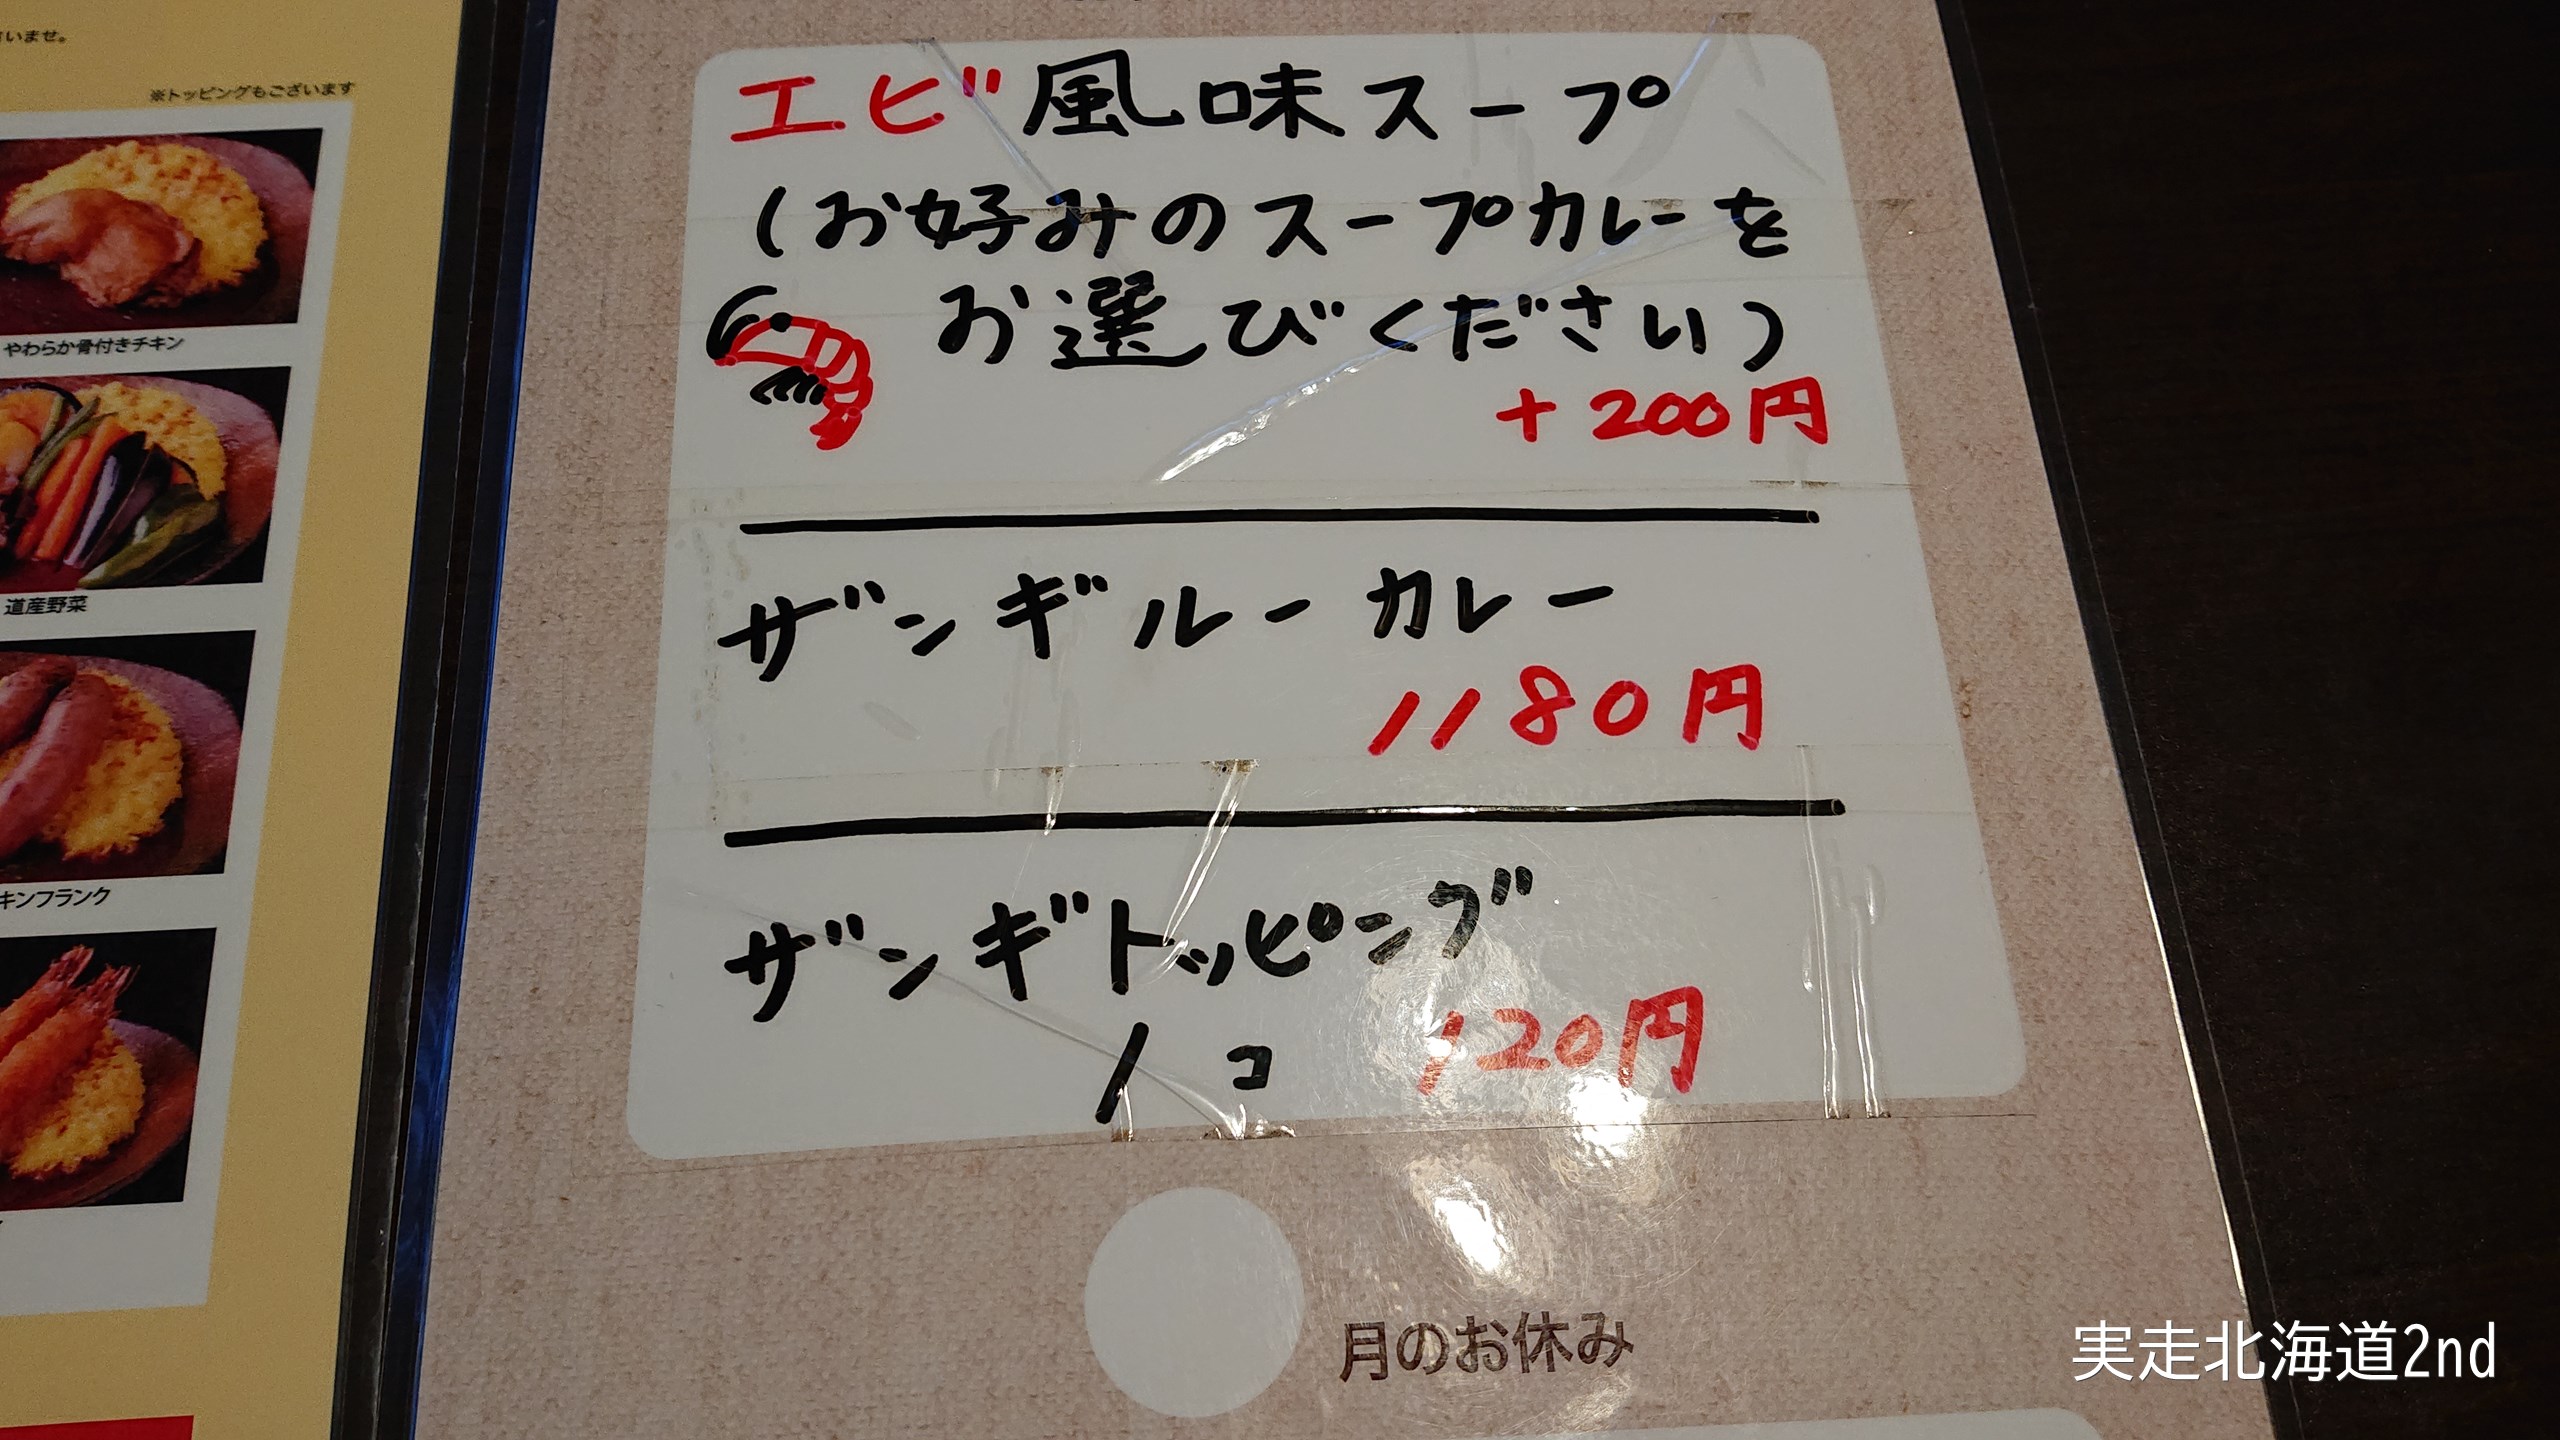 いませ。
※トッピングもございます
やわらか骨付きチキン
道産野菜
キンフランク
エビ風味スープ
(お好みのスープカレーを
お選びください)
+200円
ザンギルーカレー
1180円
ザンギトッピング
1コ 120円
月のお休み
実走北海道2nd